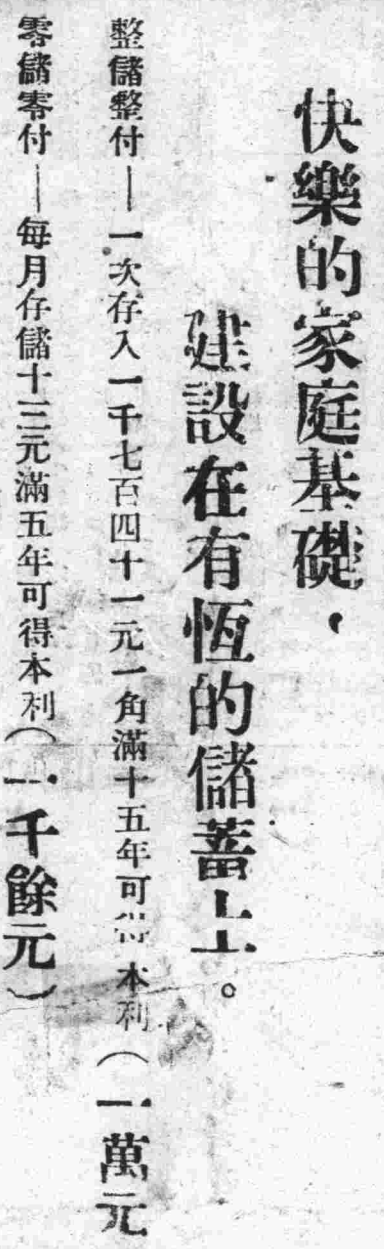 快樂的家庭基礎，
建設在有恆的儲蓄上。
整儲整付——一次存入一千七百四十一元一角滿十五年可得本利（一萬元
零儲零付——每月存儲十三元滿五年可得本利（一千餘元）